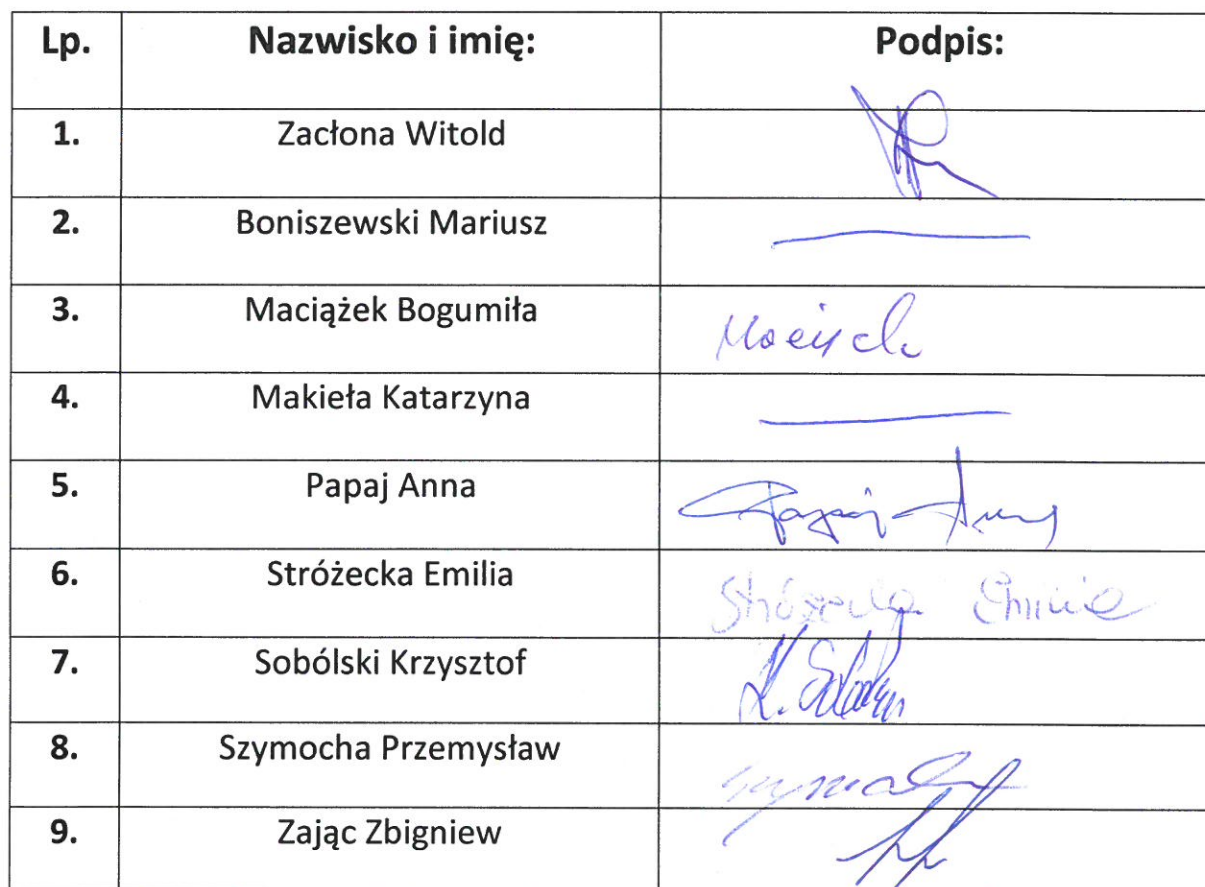 Lp. Nazwisko i imię: Podpis:
1. Zacłona Witold
2. Boniszewski Mariusz
3. Maciążek Bogumiła
4. Makieła Katarzyna
5. Papaj Anna Papaj Anna
6. Stróżecka Emilia Stróżecka Emilia
7. Sobólski Krzysztof
8. Szymocha Przemysław
9. Zając Zbigniew